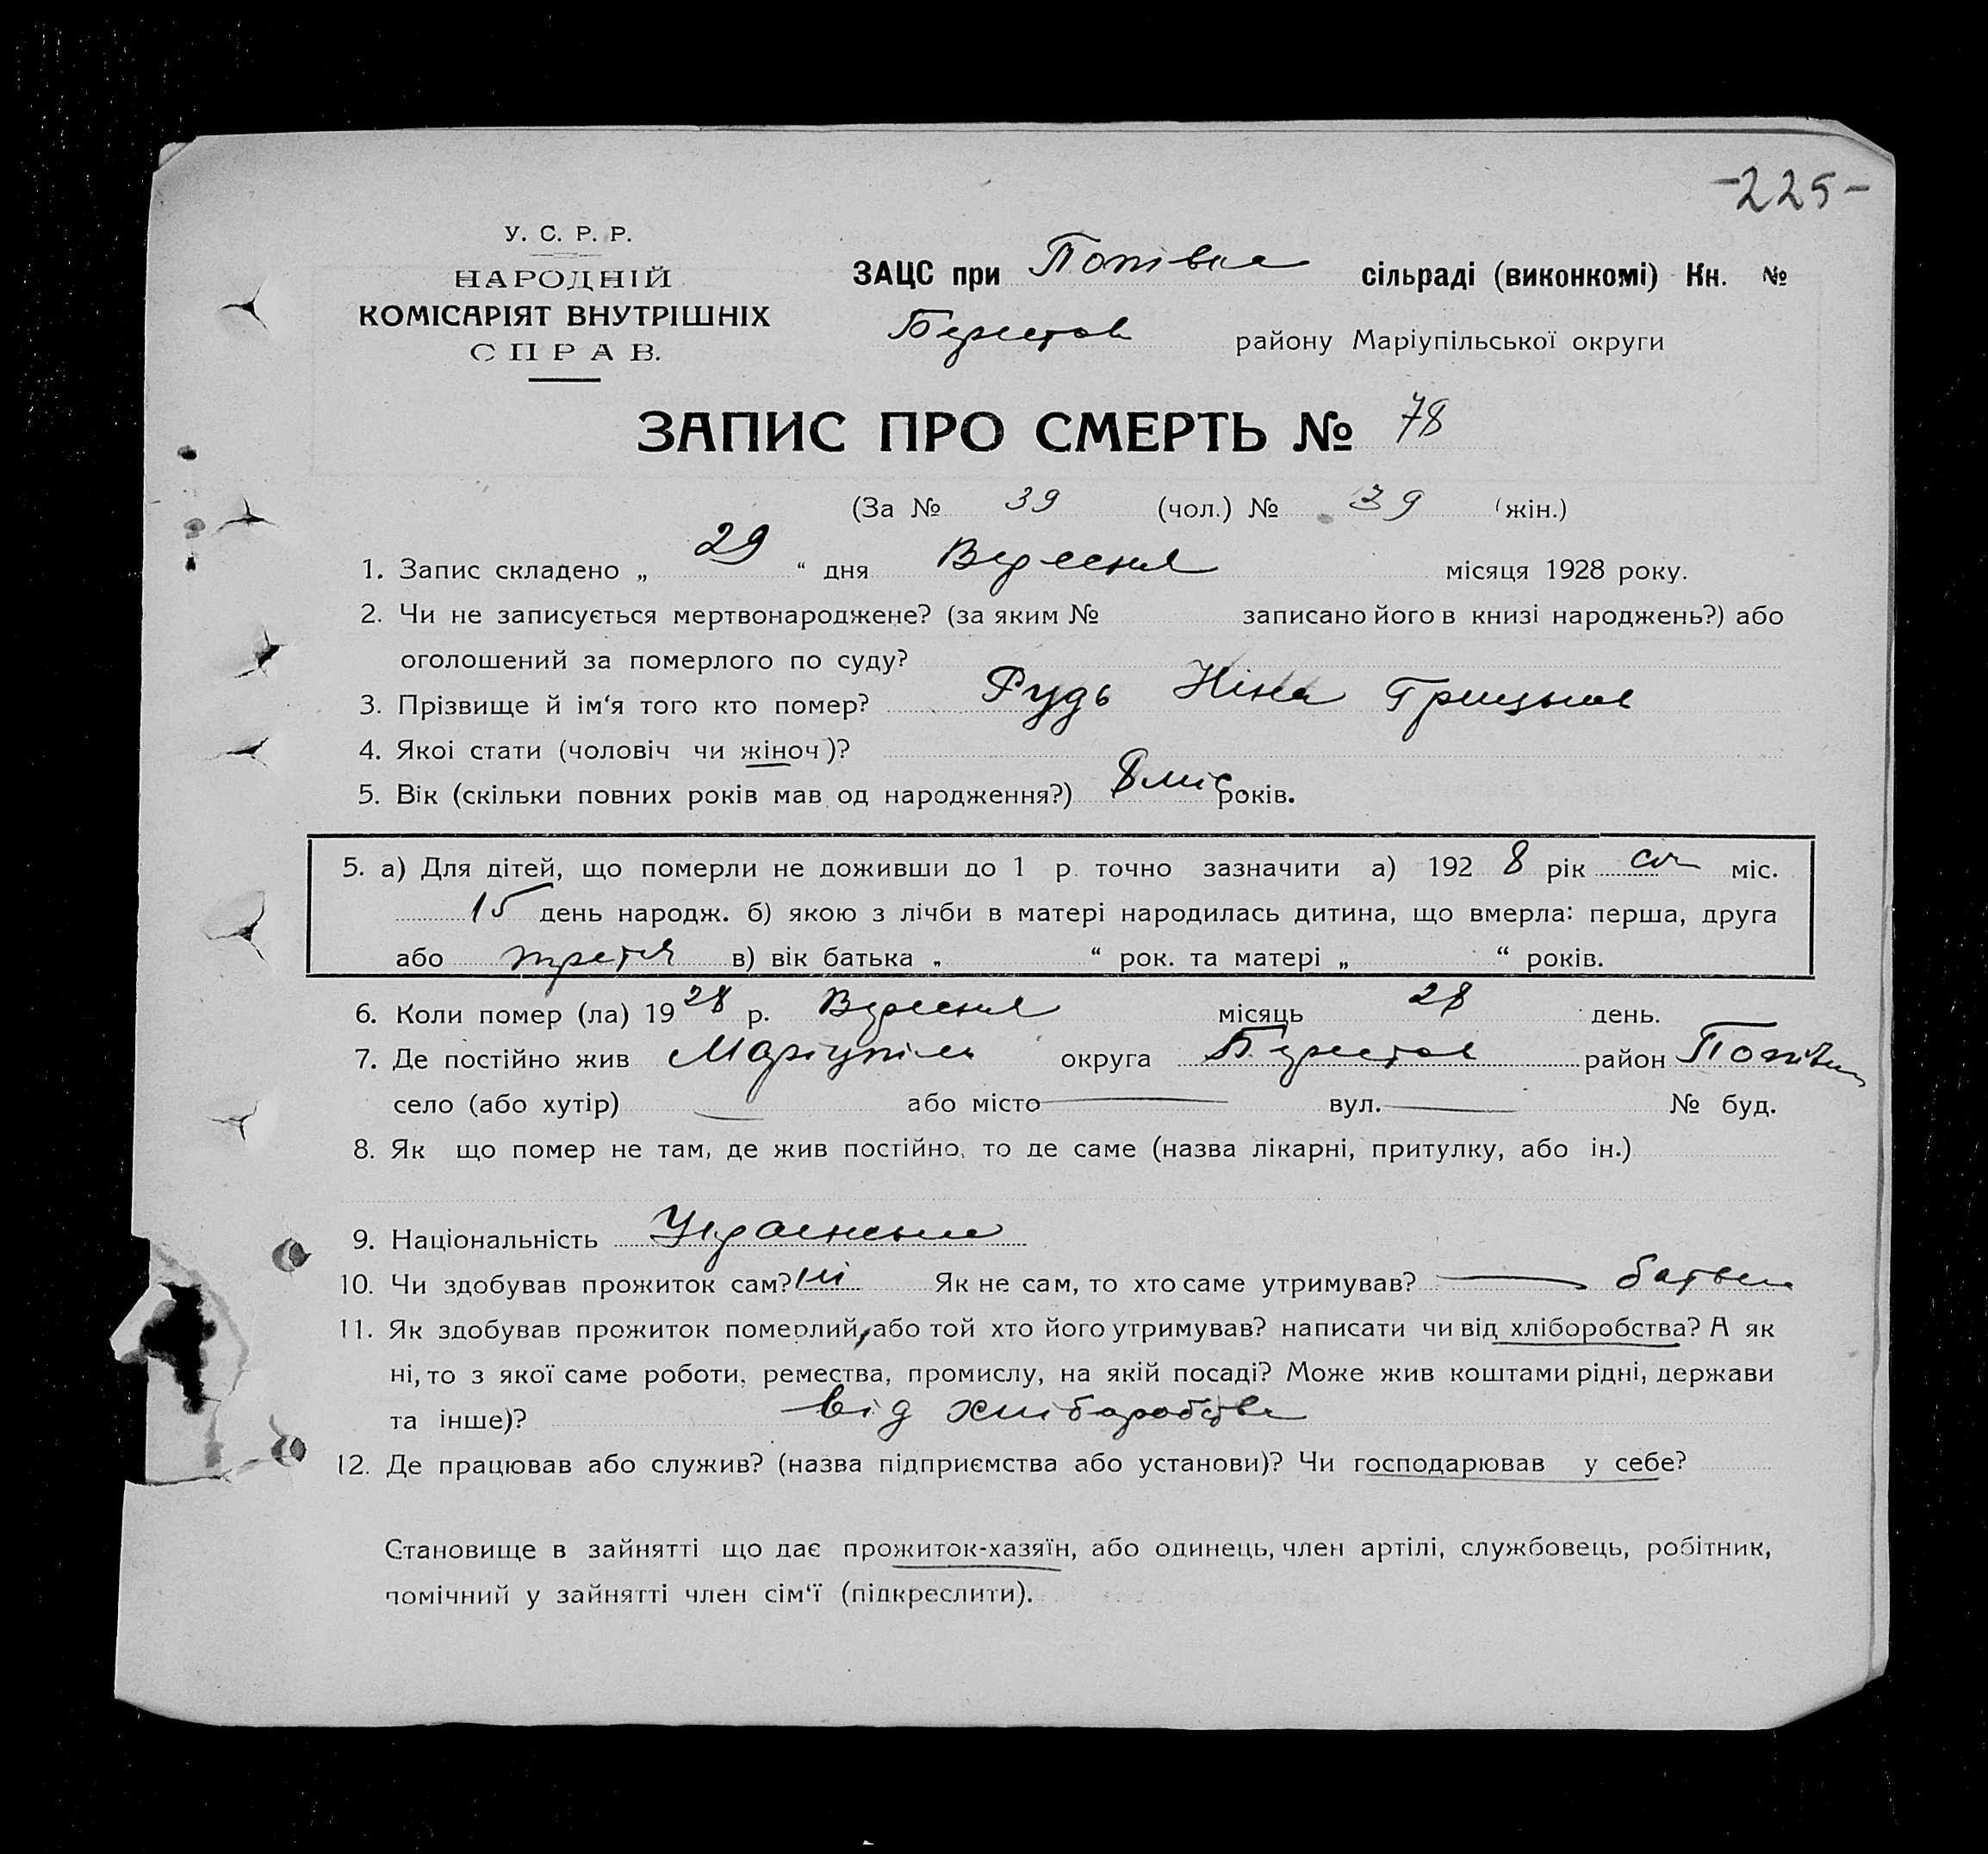 -225-
У. С. Р. Р.
НАРОДНІЙ
КОМІСАРІЯТ ВНУТРІШНІХ
СПРАВ.
ЗАЦС при Попівка сільраді (виконкомі) Кн. №
Берестов району Маріупільської округи
ЗАПИС ПРО СМЕРТЬ № 78
(За № 39 (чол.) № 39 (жін.)
1. Запис складено „ 29 “ дня Вересня місяця 1928 року.
2. Чи не записується мертвонароджене? (за яким № записано його в книзі народжень?) або
оголошений за померлого по суду?
3. Прізвище й ім‘я того кто помер? Рудь Ніна Грицьков
4. Якоі стати (чоловіч чи жіноч)?
5. Вік (скільки повних років мав од народження?) 8 міс років.
5. а) Для дітей, що померли не доживши до 1 р. точно зазначити а) 192 8 рік січ міс.
15 день народж. б) якою з лічби в матері народилась дитина, що вмерла: перша, друга
або третя в) вік батька „ “ рок. та матері „ “ років.
6. Коли помер (ла) 19 28 р. Вересня місяць 28 день.
7. Де постійно жив Маріупіль округа Берестов район Попівка
село (або хутір) або місто вул. № буд.
8. Як що помер не там, де жив постійно, то де саме (назва лікарні, притулку, або ін.)
9. Національність Українська
10. Чи здобував прожиток сам? ні Як не сам, то хто саме утримував? батько
11. Як здобував прожиток померлий, або той хто його утримував? написати чи від хліборобства? А як
ні, то з якої саме роботи, ремества, промислу, на якій посаді? Може жив коштами рідні, держави
та інше)? від хліборобства
12. Де працював або служив? (назва підприємства або установи)? Чи господарював у себе?
Становище в зайнятті що дає прожиток-хазяїн, або одинець, член артілі, службовець, робітник,
помічний у зайнятті член сім‘ї (підкреслити).